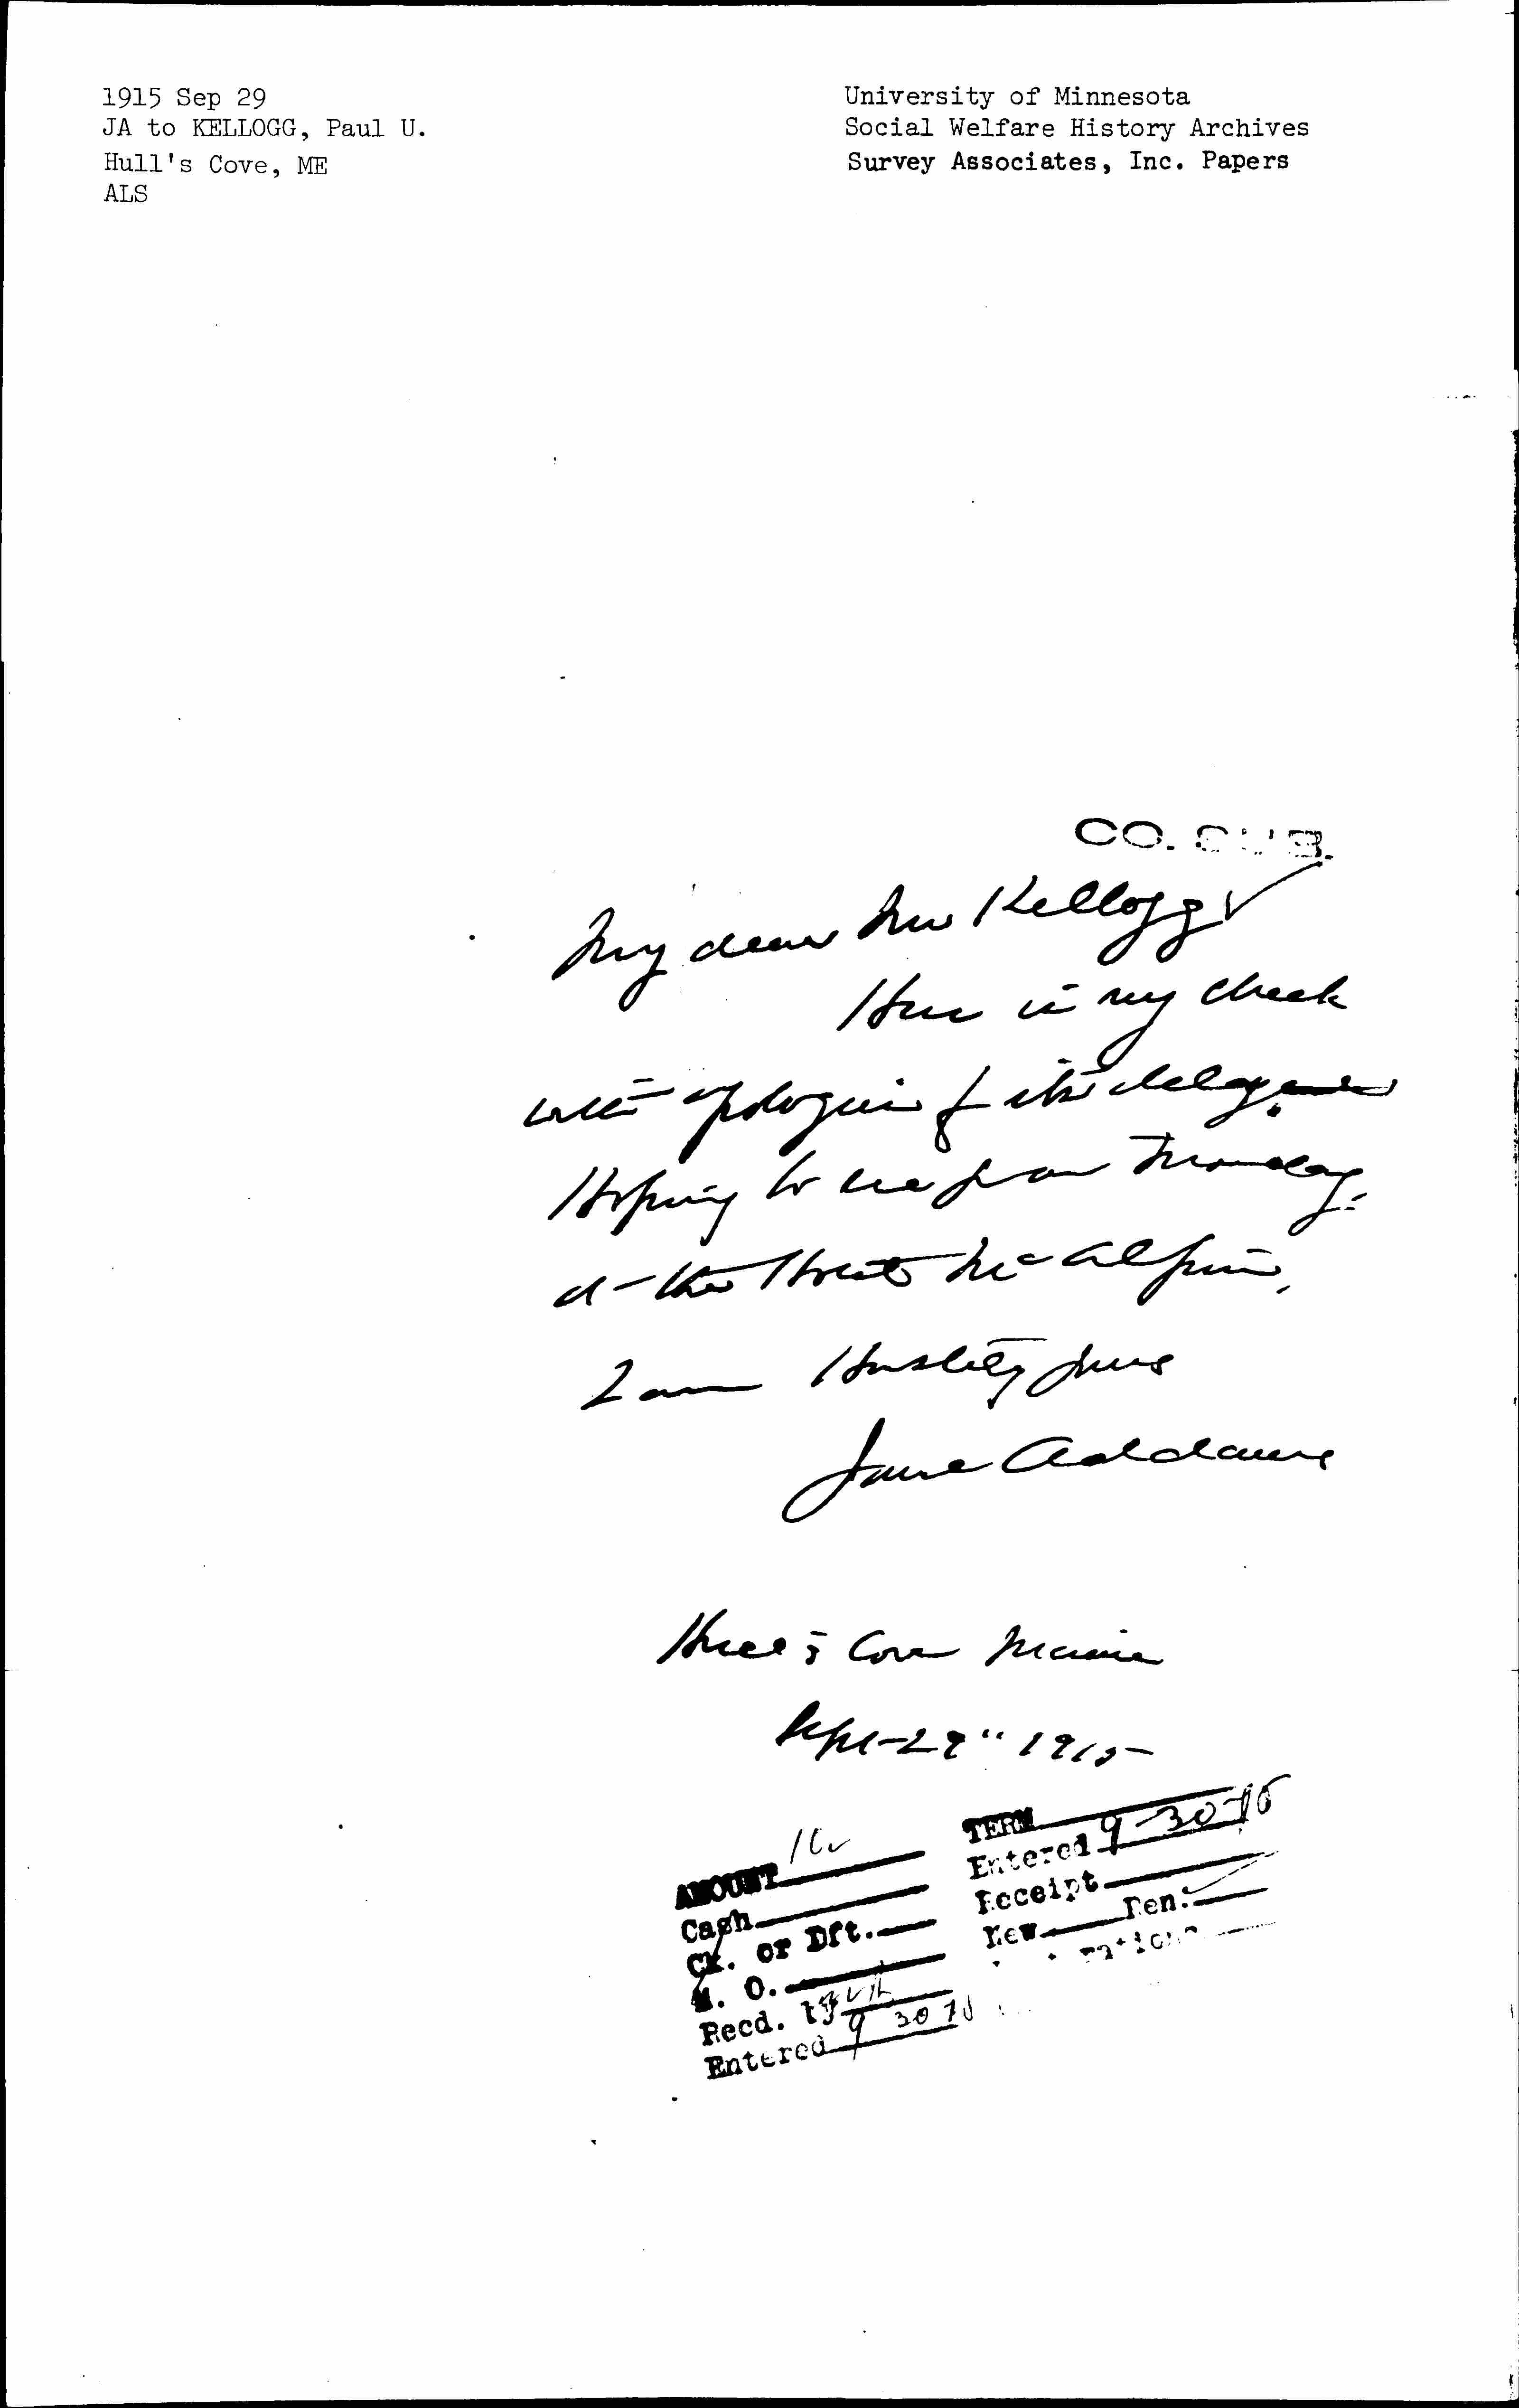 1915 Sep 29
JA to KELLOGG, Paul U.
Hull's Cove, ME
ALS
University of Minnesota
Social Welfare History Archives
Survey Associates, Inc. Papers
CO. SUB.
My dear Mr Kellogg
Here is my check
with apologies for its delay
Hoping to see you Monday
at the Hotel McAlpin,
I am Hastily yours
Jane Addams
Hull's Cove Maine
Sept 29" 1915
AMOUNT
Cash
Ck. or Dft.
M. O.
Recd. by
Entered 9 30
TERM
Entered 9-30-15
Receipt
New Ren.